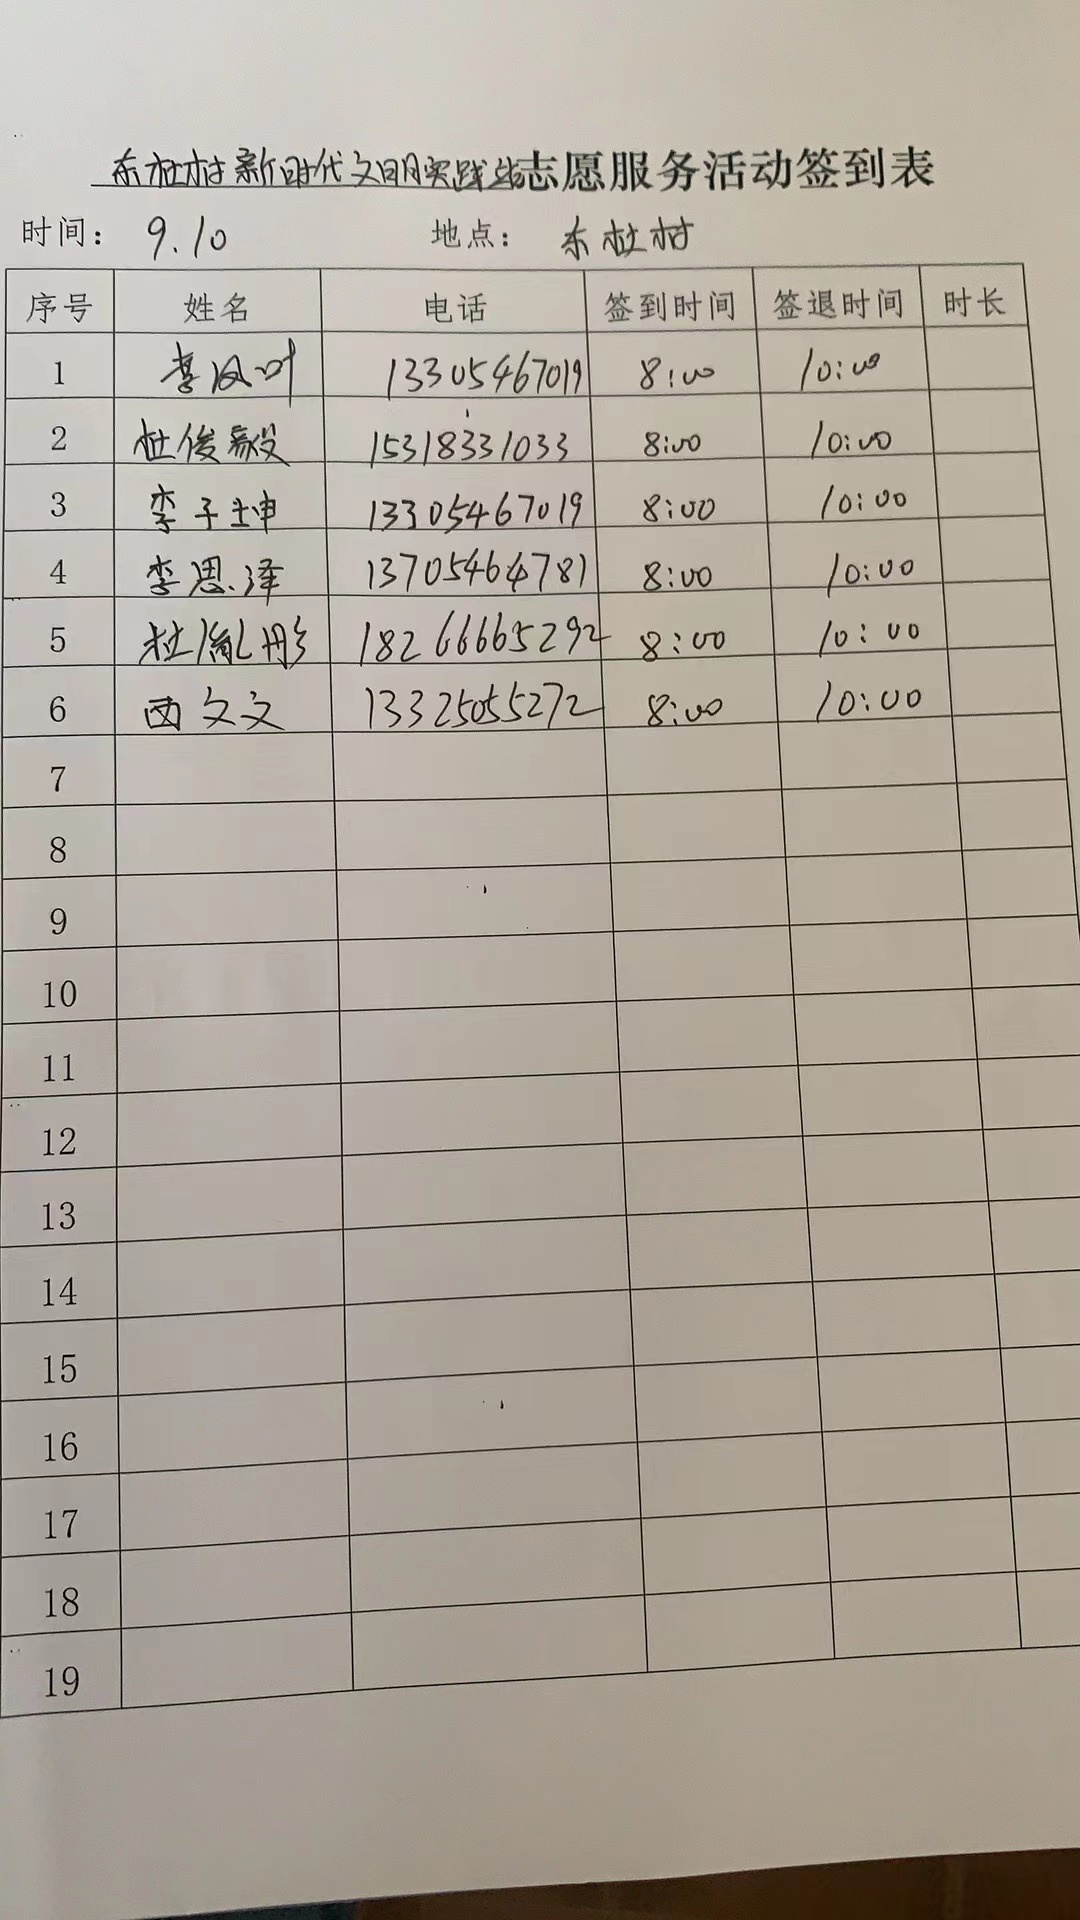 东杜村新时代文明实践站志愿服务活动签到表
时间： 9.10 地点： 东杜村
序号 姓名 电话 签到时间 签退时间 时长
1 李风叶 13305467019 8:00 10:00
2 杜俊毅 15318331033 8:00 10:00
3 李子坤 13305467019 8:00 10:00
4 李思泽 13705464781 8:00 10:00
5 杜胤彤 18266665292 8:00 10:00
6 西文文 13325055272 8:00 10:00
7
8
9
10
11
12
13
14
15
16
17
18
19